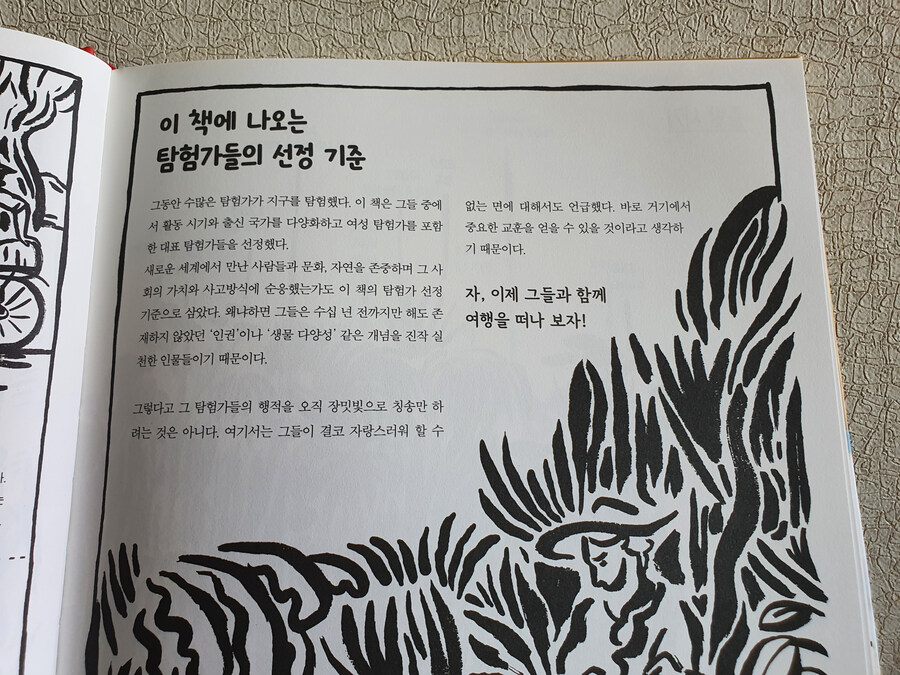 이 책에 나오는
탐험가들의 선정 기준
그동안 수많은 탐험가가 지구를 탐험했다. 이 책은 그들 중에
서 활동 시기와 출신 국가를 다양화하고 여성 탐험가를 포함
한 대표 탐험가들을 선정했다.
새로운 세계에서 만난 사람들과 문화, 자연을 존중하며 그 사
회의 가치와 사고방식에 순응했는가도 이 책의 탐험가 선정
기준으로 삼았다. 왜냐하면 그들은 수십 년 전까지만 해도 존
재하지 않았던 '인권'이나 '생물 다양성' 같은 개념을 진작 실
천한 인물들이기 때문이다.
그렇다고 그 탐험가들의 행적을 오직 장밋빛으로 칭송만 하
려는 것은 아니다. 여기서는 그들이 결코 자랑스러워 할 수
없는 면에 대해서도 언급했다. 바로 거기에서
중요한 교훈을 얻을 수 있을 것이라고 생각하
기 때문이다.
자, 이제 그들과 함께
여행을 떠나 보자!